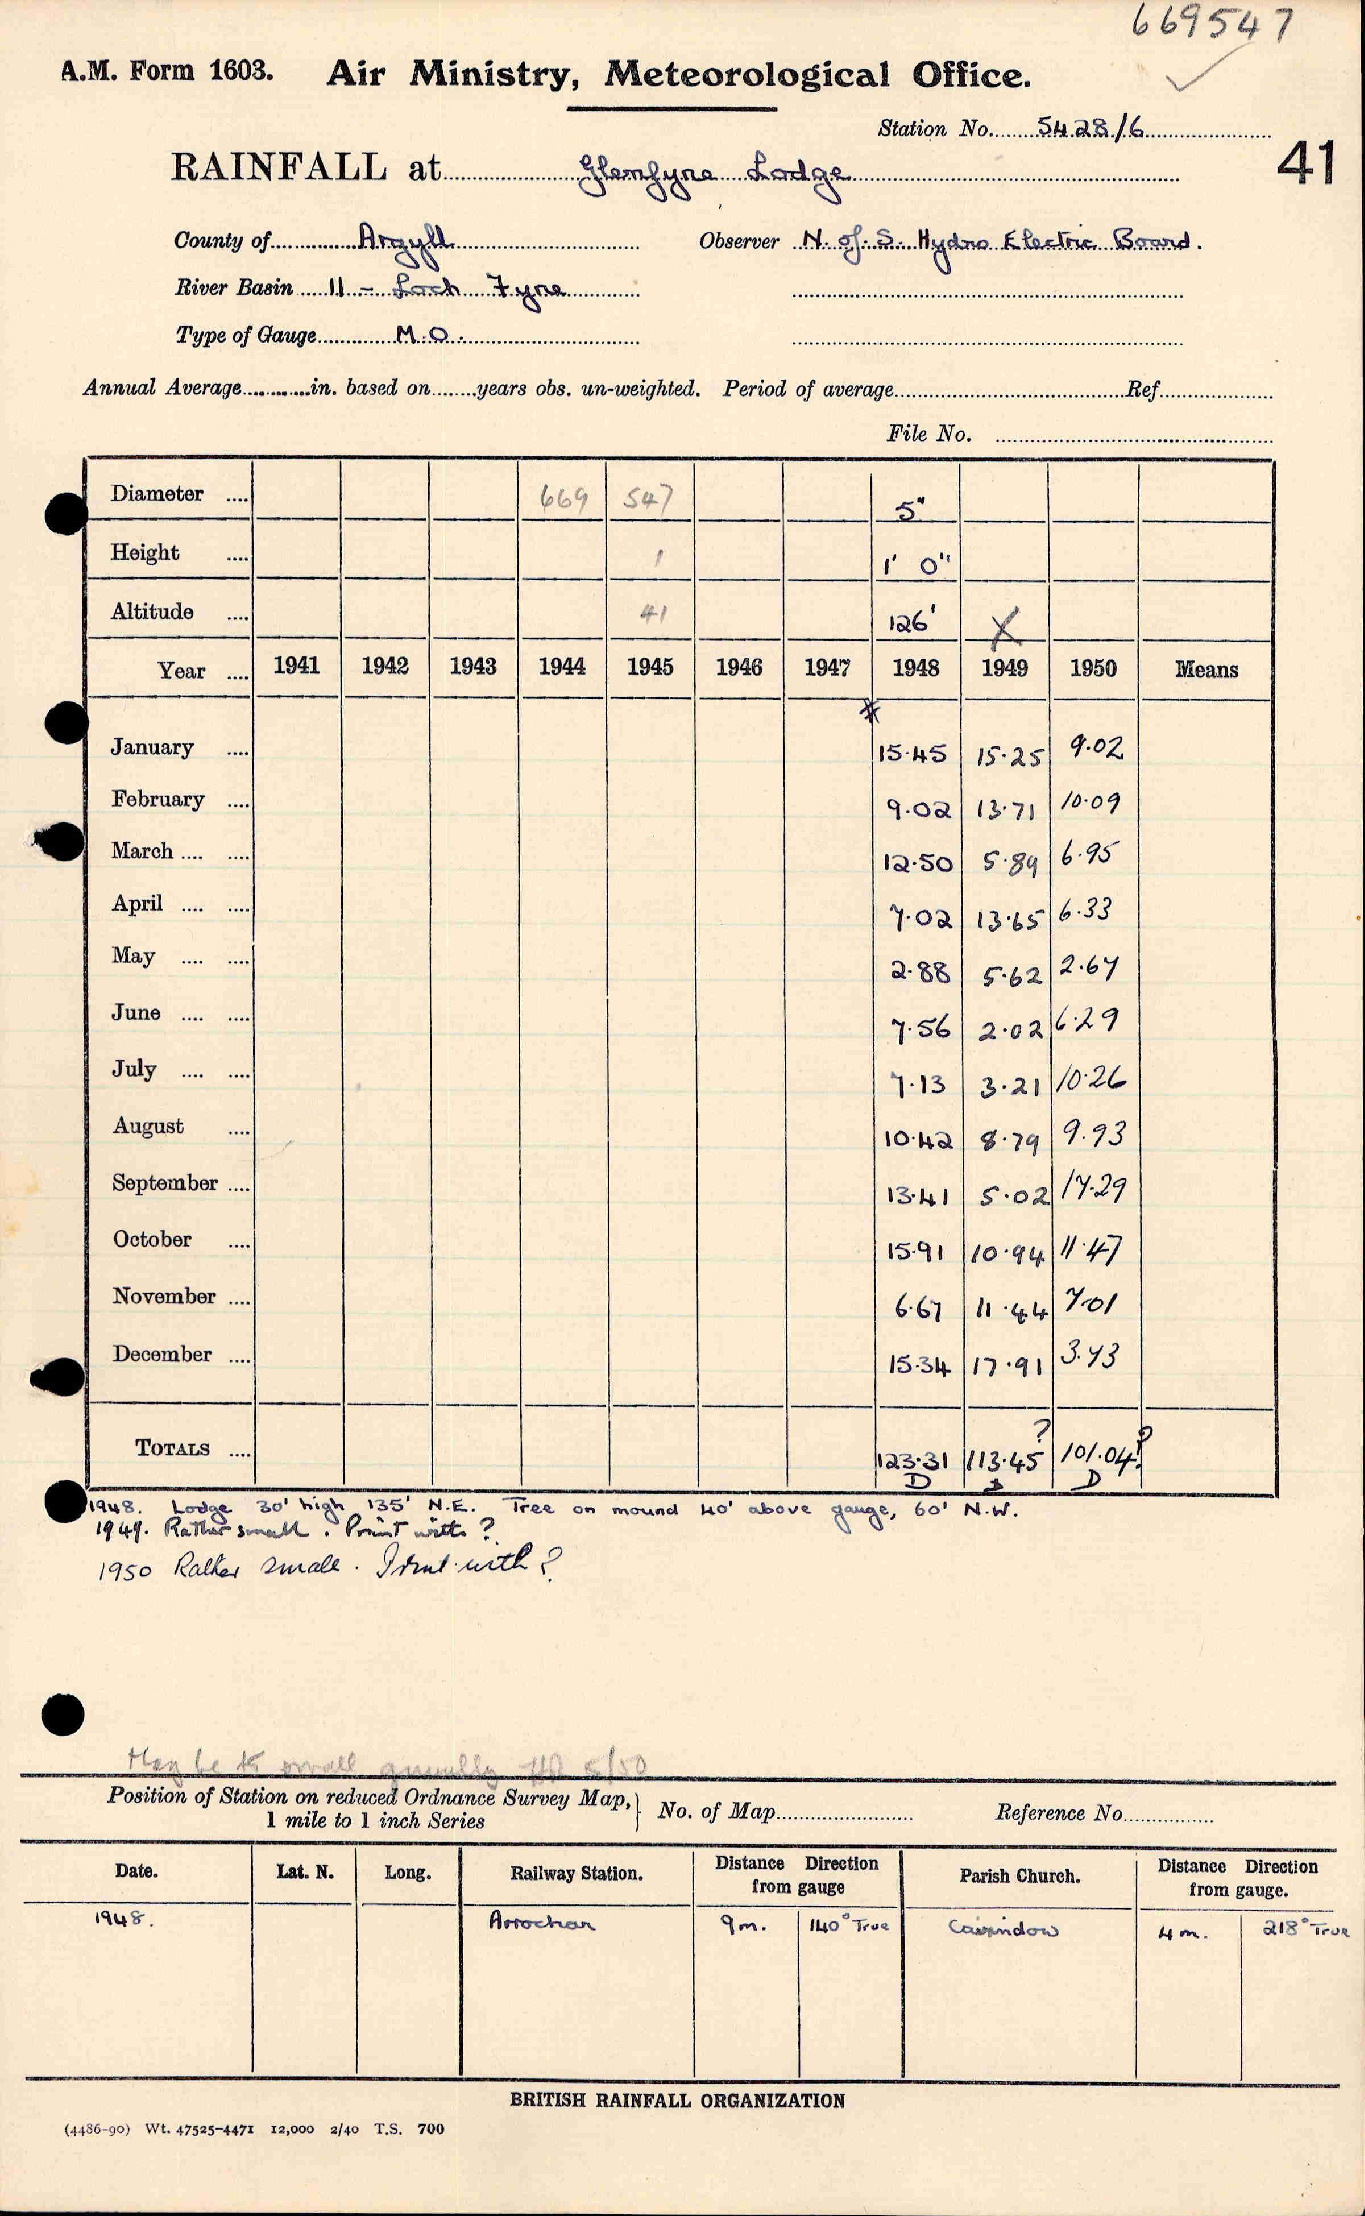 669547
A.M. Form 1603. Air Ministry, Meteorological Office.
Station No. 5428/6
41
RAINFALL at Glenfyne Lodge
County of Argyll Observer N. of. S. Hydro Electric Board.
River Basin 11 - Loch Fyne
Type of Gauge M.O.
Annual Average in. based on years obs. un-weighted. Period of average Ref.
File No.
Diameter .... 669 547 5"
Height .... 1 1' 0"
Altitude .... 41 126' X
Year .... 1941 1942 1943 1944 1945 1946 1947 1948 1949 1950 Means
January .... 15.45 15.25 9.02
February .... 9.02 13.71 10.09
March .... .... 12.50 5.89 6.95
April .... .... 7.02 13.65 6.33
May .... .... 2.88 5.62 2.67
June .... .... 7.56 2.02 6.29
July .... .... 7.13 3.21 10.26
August .... 10.42 8.79 9.93
September .... 13.41 5.02 17.29
October .... 15.91 10.94 11.47
November .... 6.67 11.44 7.01
December .... 15.34 17.91 3.73
? ?
TOTALS .... 123.31 113.45 101.04
D D D
1948. Lodge 30' high 135' N.E. Tree on mound 40' above gauge, 60' N.W.
1949. Rather small. Print with ?
1950 Rather small. Print with ?
May be too small generally 5/50
Position of Station on reduced Ordnance Survey Map, 1 mile to 1 inch Series No. of Map Reference No.
Date. Lat. N. Long. Railway Station. Distance Direction from gauge Parish Church. Distance Direction from gauge.
1948. Arrochar 9 m. 140° True Cairndow 4 m. 218° True
BRITISH RAINFALL ORGANIZATION
(4486-90) Wt. 47525-4471 12,000 2/40 T.S. 700